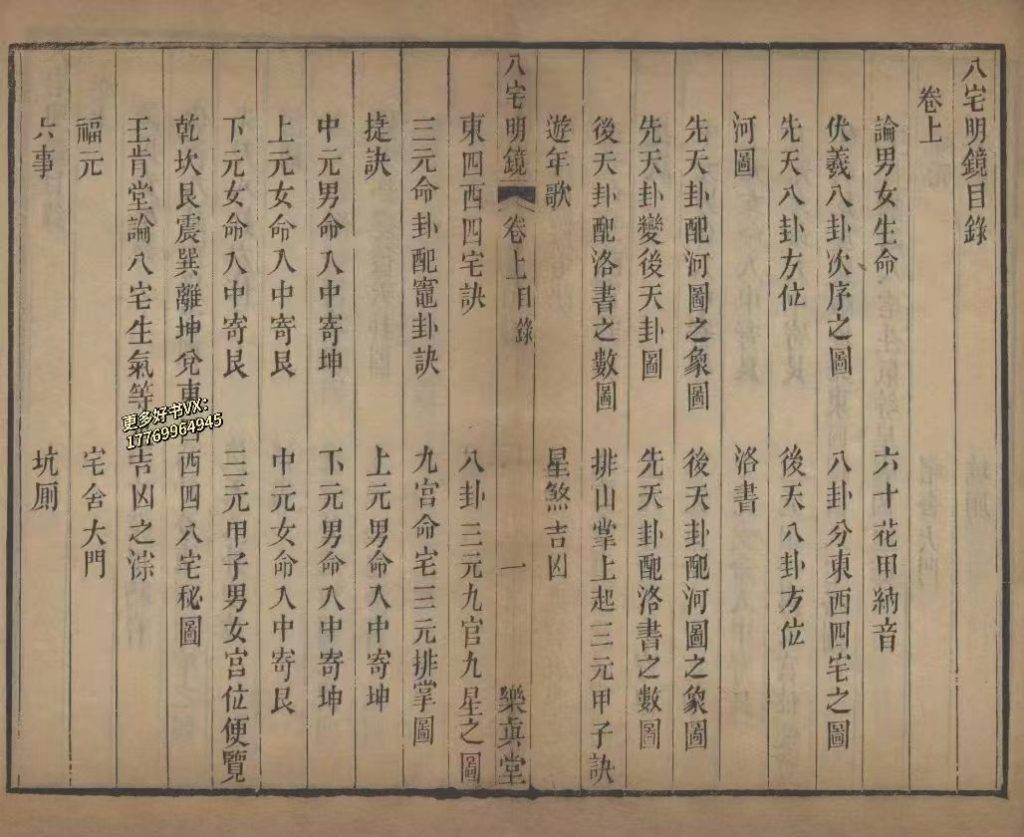 八宅明鏡目錄
卷上
論男女生命 六十花甲納音
伏羲八卦次序之圖 八卦分東西四宅之圖
先天八卦方位 後天八卦方位
河圖 洛書
先天卦配河圖之象圖 後天卦配河圖之象圖
先天卦變後天卦圖 先天卦配洛書之數圖
後天卦配洛書之數圖 排山掌上起三元甲子訣
遊年歌 星煞吉凶
八宅明鏡 卷上目錄 一 樂真堂
東四西四宅訣 八卦三元九宫九星之圖
三元命卦配竈卦訣 九宫命宅三元排掌圖
捷訣 上元男命入中寄坤
中元男命入中寄坤 下元男命入中寄坤
上元女命入中寄艮 中元女命入中寄艮
下元女命入中寄艮 三元甲子男女宫位便覽
乾坎艮震巽離坤兌東四西四八宅秘圖
王肯堂論八宅生氣等吉凶之淙
福元 宅舍大門
六事 坑厠
更多好书VX：
17769964945